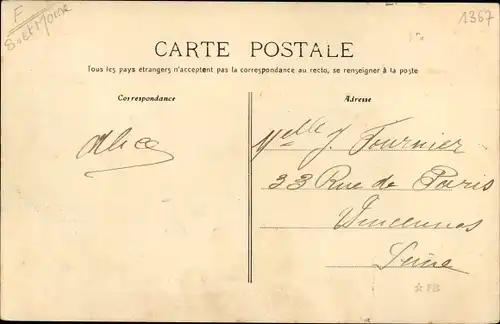 F
S. et Marne
1367
CARTE POSTALE
Tous les pays étrangers n'acceptent pas la correspondance au recto, se renseigner à la poste
Correspondance
Adresse
Alice
Melle J. Fournier
33 Rue de Paris
Vincennes
Seine
☆ FB